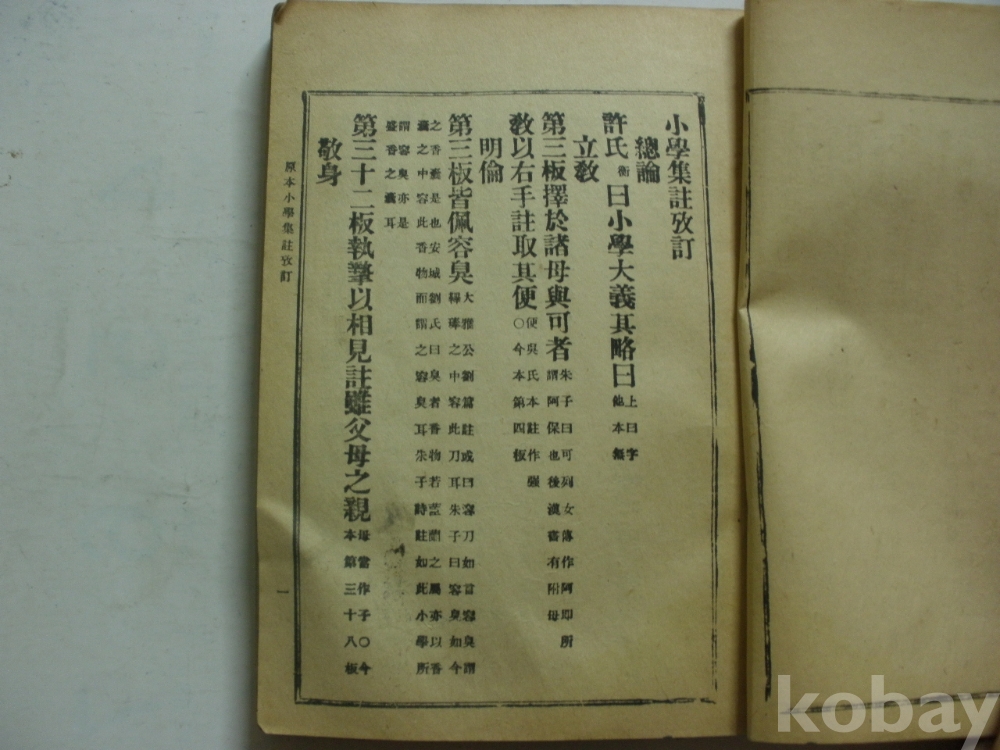 小學集註攷訂
總論
許氏衡曰小學大義其略曰上曰字他本無
立敎
第三板擇於諸母與可者朱子曰可列女傳作阿卽所謂阿保也後漢書有附母
敎以右手註取其便便吳氏本註作强〇今本第四板
明倫
第三板皆佩容臭大雅公劉篇註或曰容刀如言容臭謂鞞琫之中容此刀耳朱子曰容臭如今
之香囊是也安城劉氏曰臭者香物若茝蘭之屬亦以香囊之中容此香物而謂之容臭耳朱子詩註如此小學所
謂容臭亦是盛香之囊耳
第三十二板執摯以相見註雖父母之親母當作子〇今本第三十八板
敬身
原本小學集註攷訂
一
kobay